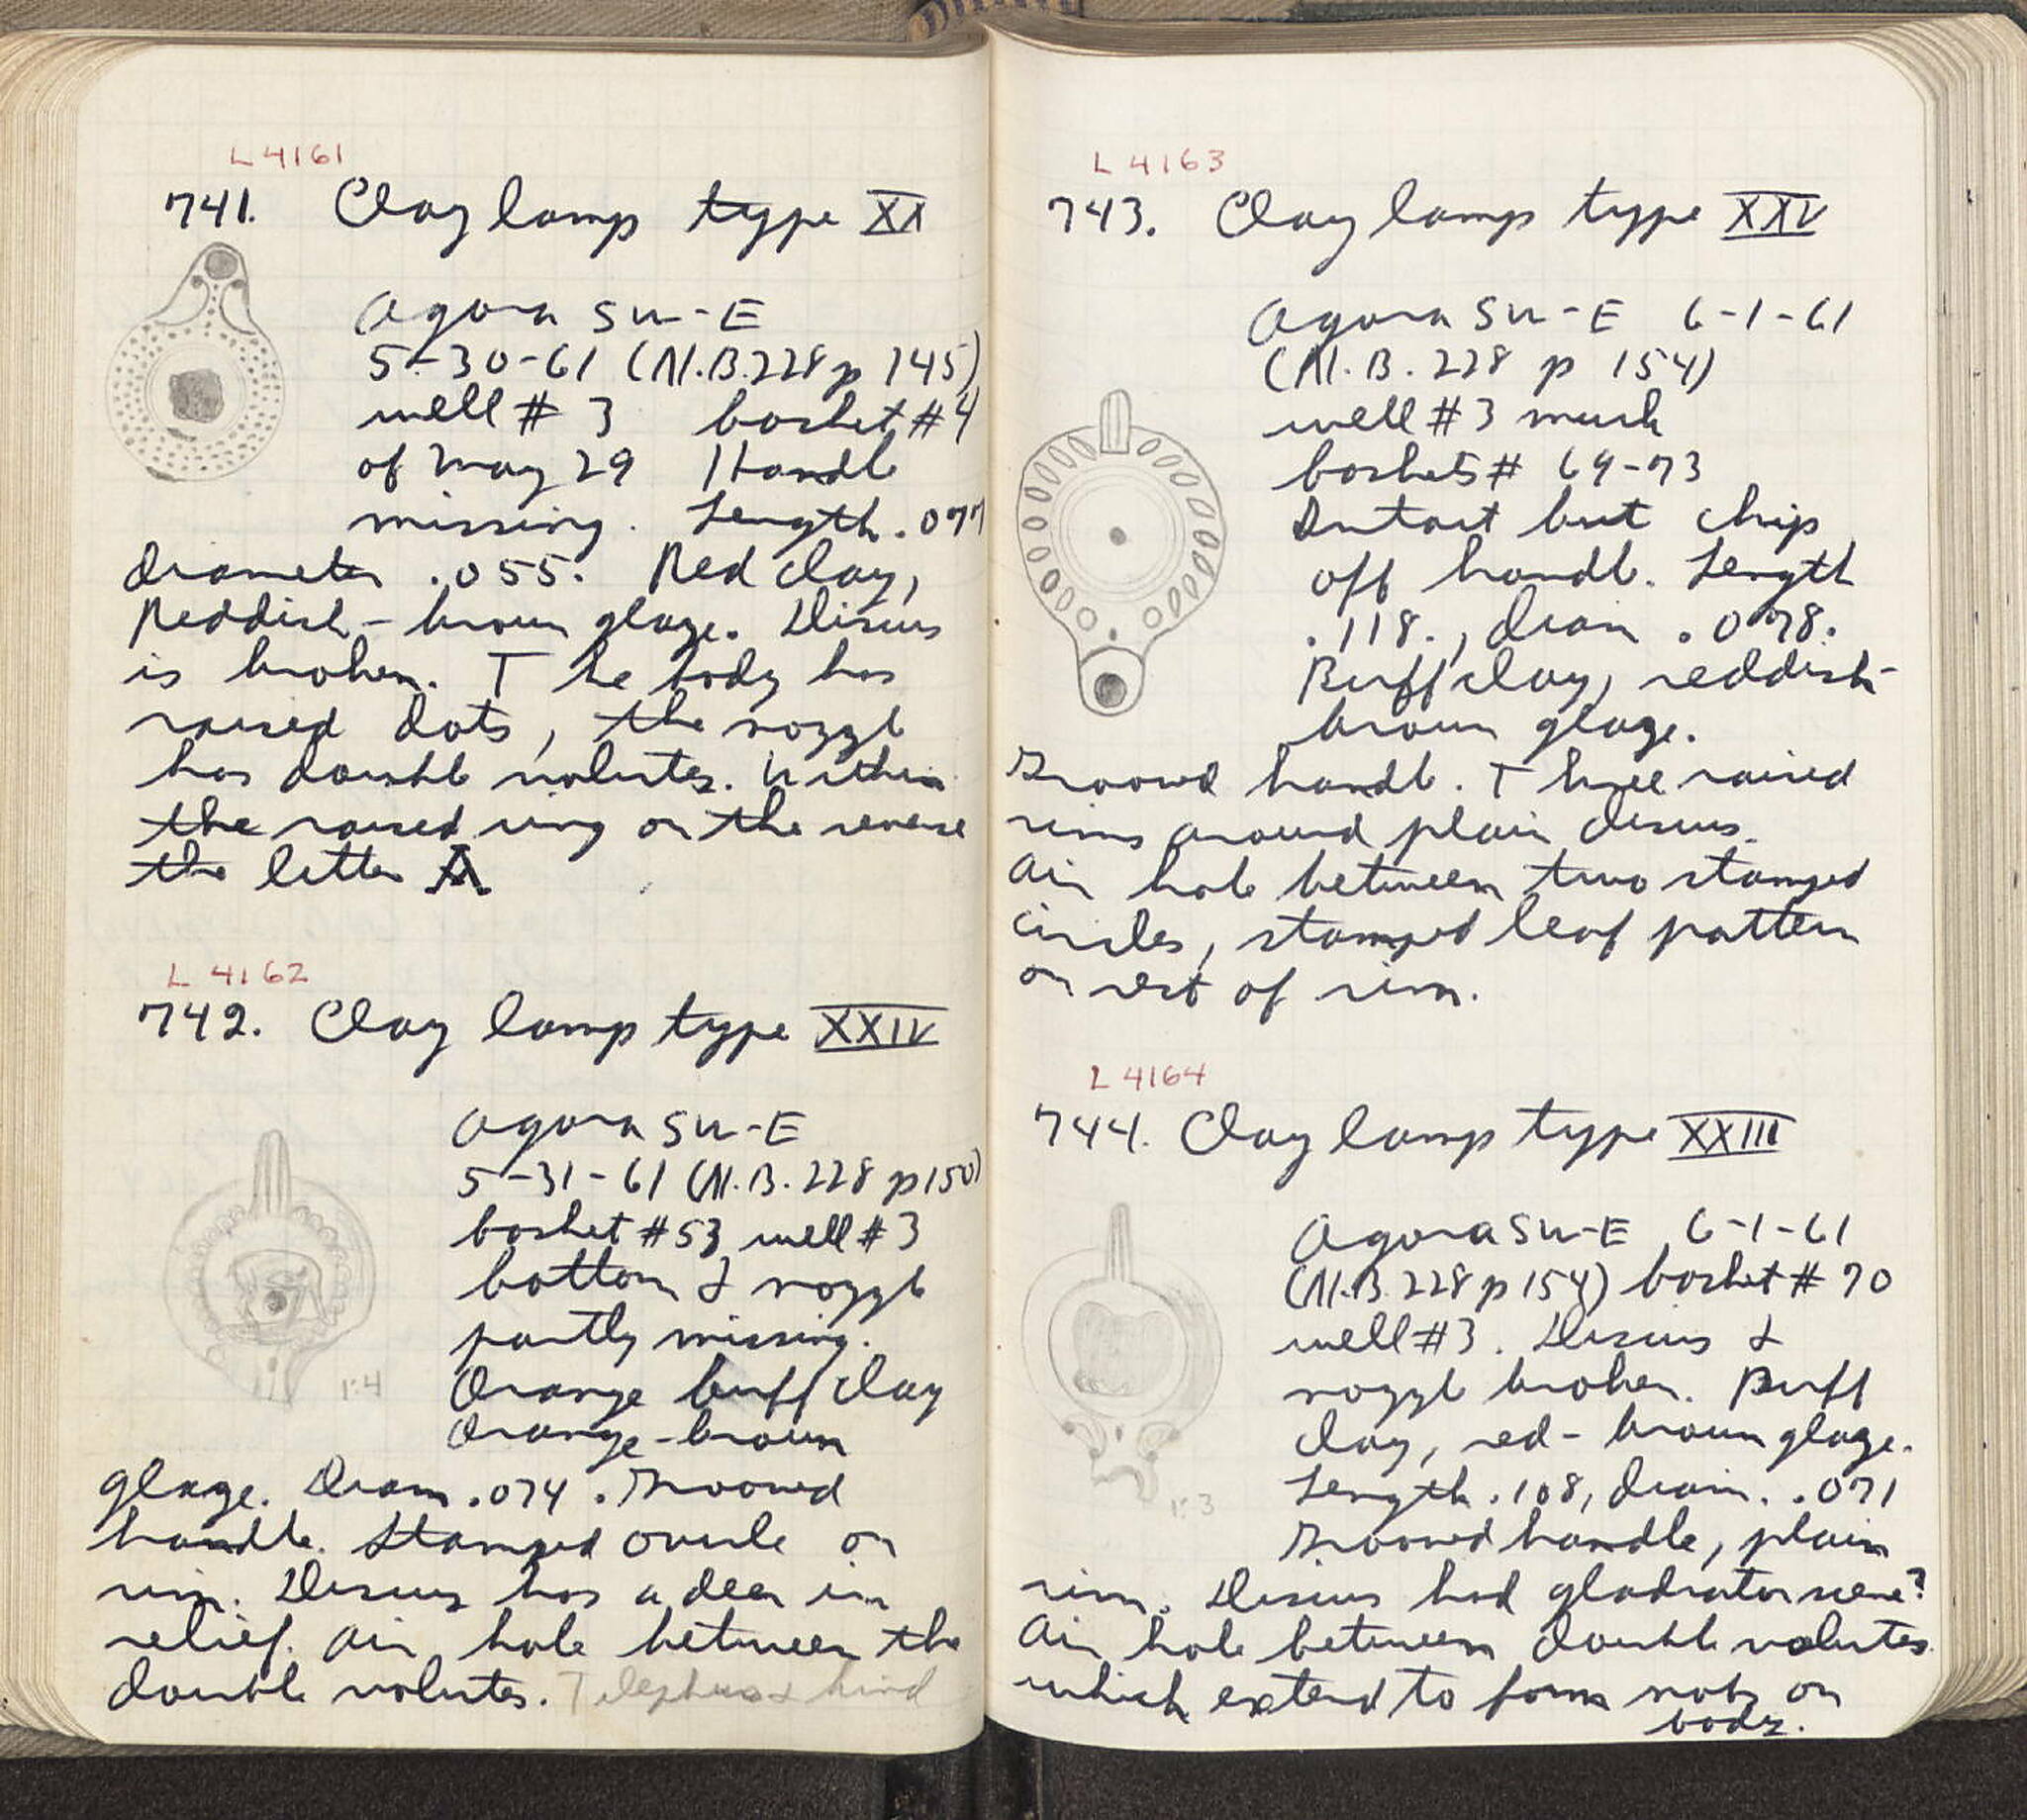 L 4161
741. Clay lamp type XX
Agora SW-E
5-30-61 (N.B. 228 p 145)
well # 3 basket #4
of May 29 Handle
missing. Length .077
diameter .055. Red clay,
Reddish-brown glaze. Discus
is broken. The body has
raised dots, the nozzle
has double volutes. Within
the raised ring on the reverse
the letter A
L 4162
742. Clay lamp type XXIV
Agora SW-E
5-31-61 (N.B. 228 p 150)
basket #53 well #3
bottom & nozzle
partly missing.
Orange buff clay
Orange-brown
1:4
glaze. Diam .074. Grooved
handle. Stamped ovule on
rim. Discus has a deer in
relief. Air hole between the
double volutes. Telephus & hind
L 4163
743. Clay lamp type XXV
Agora SW-E 6-1-61
(N.B. 228 p 154)
well #3 muck
baskets # 69-73
Intact but chip
off handle. Length
.118., diam .078.
Buff clay, reddish-
brown glaze.
Grooved handle. Three raised
rims around plain discus.
Air hole between two stamped
circles, stamped leaf pattern
on rest of rim.
L 4164
744. Clay lamp type XXIII
Agora SW-E 6-1-61
(N.B. 228 p 154) basket # 70
well #3. Discus &
nozzle broken. Buff
clay, red-brown glaze.
Length .108, diam. .071
1:3
Grooved handle, plain
rim. Discus had gladiator scene?
Air hole between double volutes
which extend to form nobs on
body.